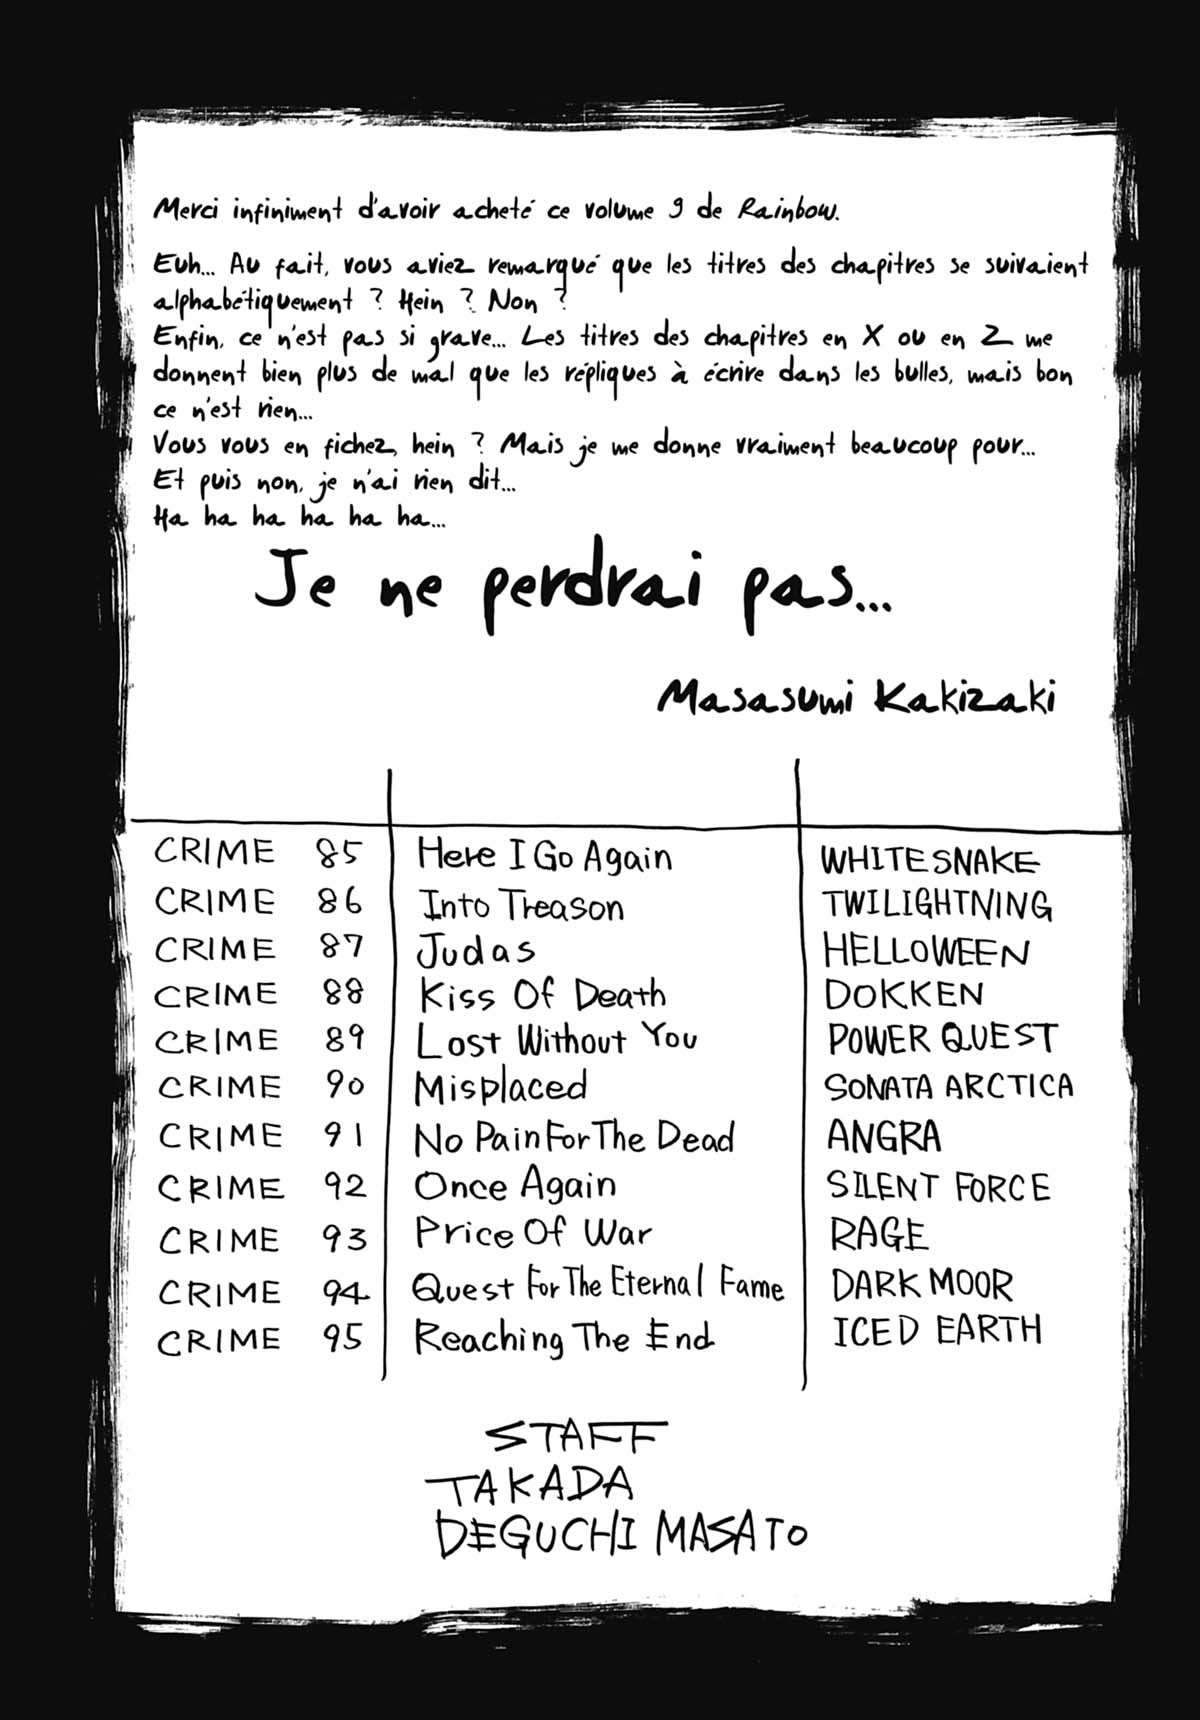 Merci infiniment d'avoir acheté ce volume 9 de Rainbow.
Euh... Au fait, vous aviez remarqué que les titres des chapitres se suivaient
alphabétiquement ? Hein ? Non ?
Enfin, ce n'est pas si grave... Les titres des chapitres en X ou en Z me
donnent bien plus de mal que les répliques à écrire dans les bulles, mais bon
ce n'est rien...
Vous vous en fichez, hein ? Mais je me donne vraiment beaucoup pour...
Et puis non, je n'ai rien dit...
Ha ha ha ha ha ha...
Je ne perdrai pas...
Masasumi Kakizaki
CRIME 85 Here I Go Again WHITESNAKE
CRIME 86 Into Treason TWILIGHTNING
CRIME 87 Judas HELLOWEEN
CRIME 88 Kiss Of Death DOKKEN
CRIME 89 Lost Without You POWER QUEST
CRIME 90 Misplaced SONATA ARCTICA
CRIME 91 No Pain For The Dead ANGRA
CRIME 92 Once Again SILENT FORCE
CRIME 93 Price Of War RAGE
CRIME 94 Quest For The Eternal Fame DARK MOOR
CRIME 95 Reaching The End ICED EARTH
STAFF
TAKADA
DEGUCHI MASATO